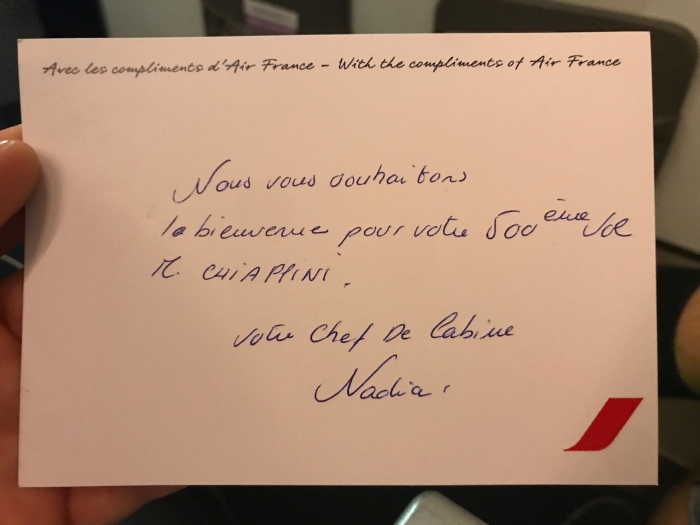 Avec les compliments d'Air France - With the compliments of Air France
Nous vous souhaitons
la bienvenue pour votre 500ème vol
M. CHIAPPINI.
votre Chef De Cabine
Nadia.